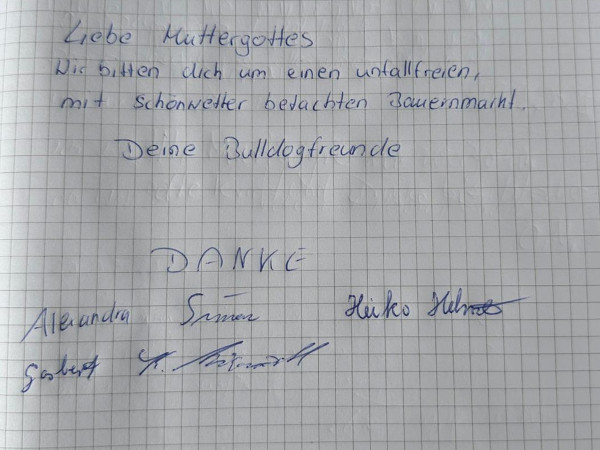 Liebe Muttergottes
Wir bitten dich um einen unfallfreien,
mit schönwetter bedachten Bauernmarkt.
Deine Bulldogfreunde
DANKE
Alexandra Simon Heiko